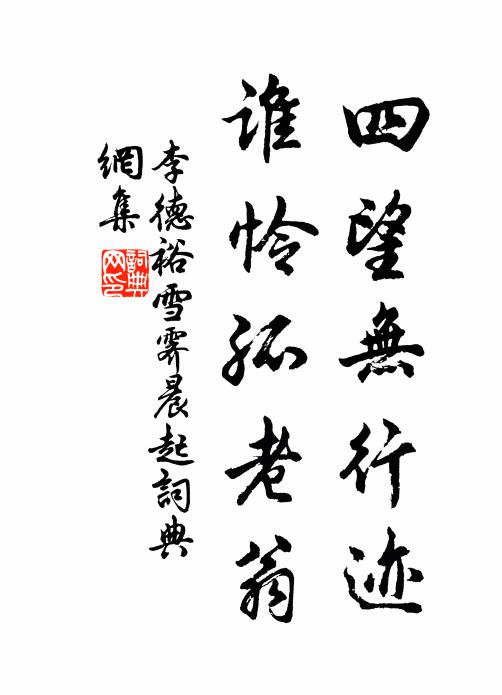 四望無行迹
谁怜孤老翁
李德裕雪霽晨起詞典
網集
詞典
网印